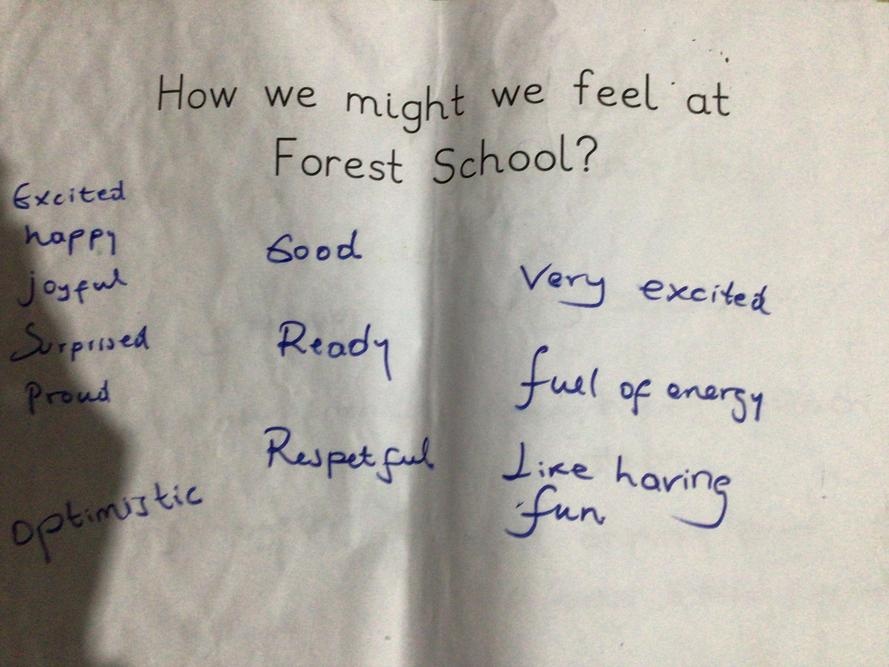 How we might we feel at
Forest School?
Excited
happy
joyful
Surprised
Proud
optimistic
Good
Ready
Respetful
Very excited
fuel of energy
Like having
fun